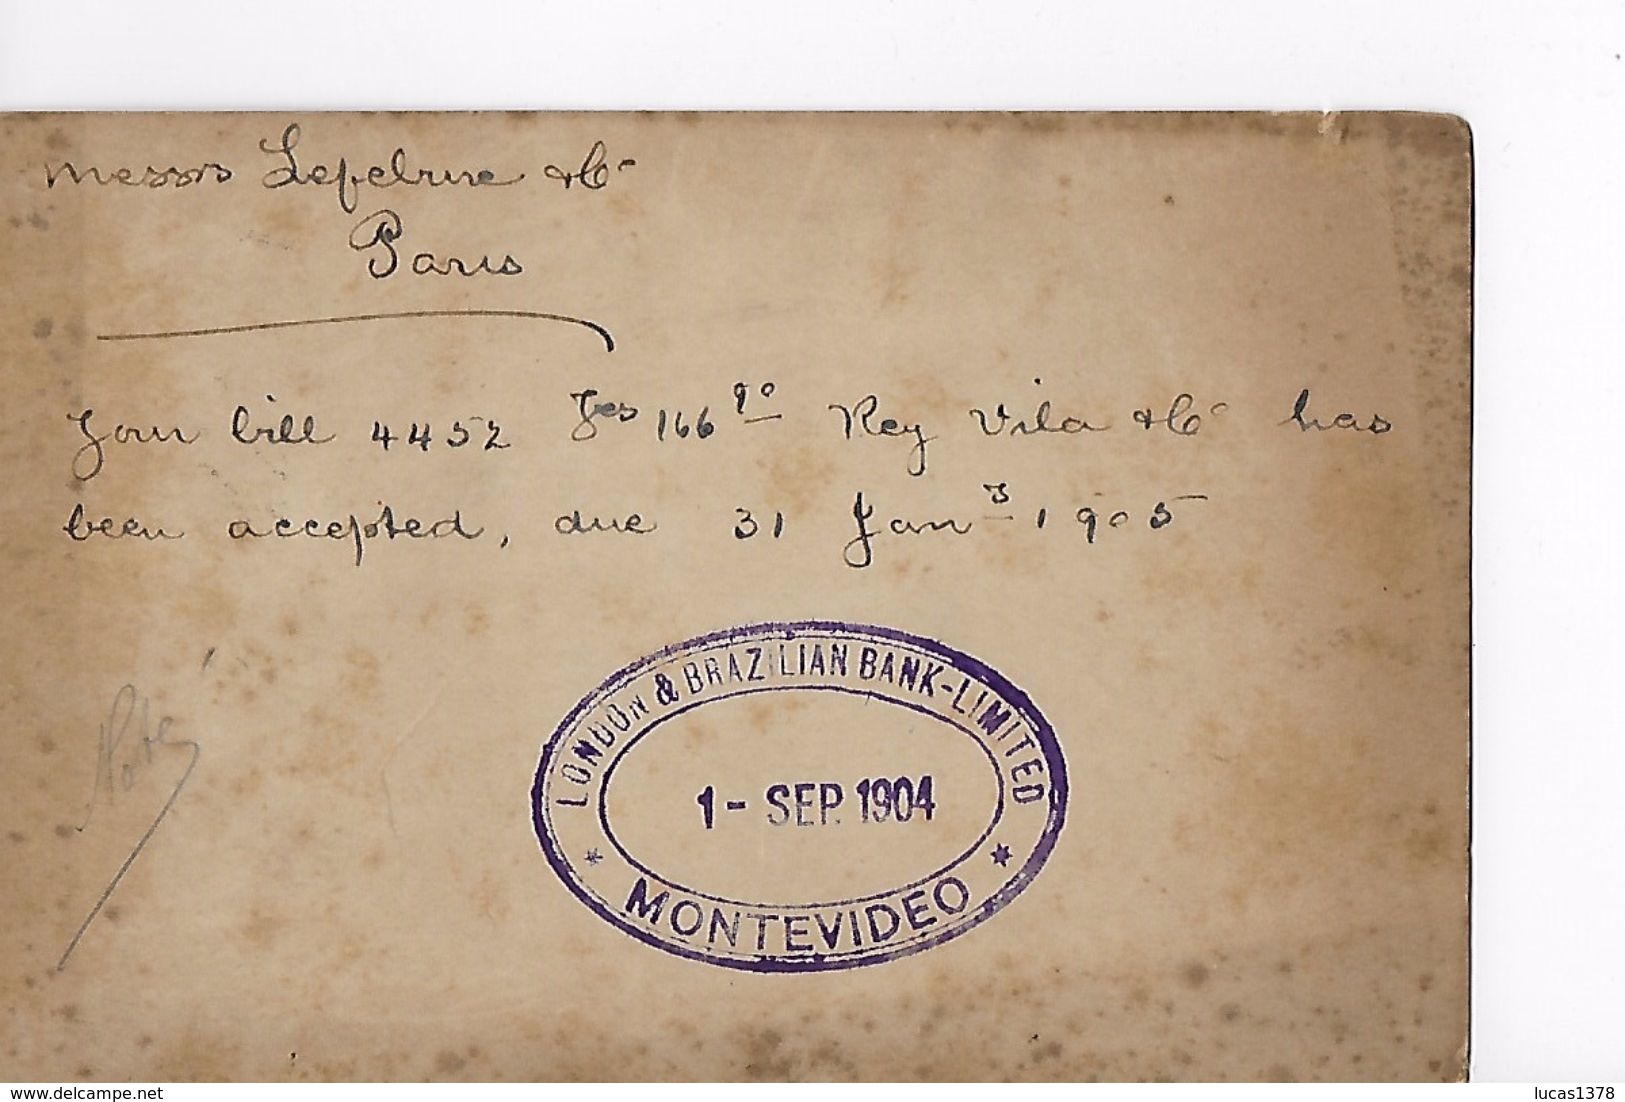 Messrs Lefebvre & Co
Paris
Your bill 4452 Fcs 166 90 Rey Vila & Co has
been accepted, due 31 Jany 1905
LONDON & BRAZILIAN BANK-LIMITED
1 - SEP. 1904
* MONTEVIDEO *
Noté
delcampe.net
lucas1378